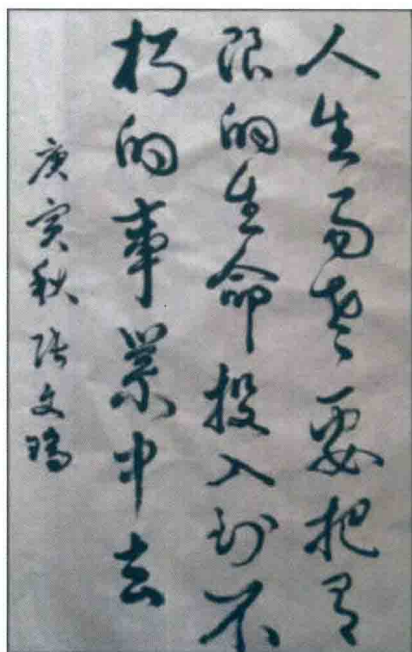 人生易老要把有
限的生命投入到不
朽的事业中去
庚寅秋张文瑞